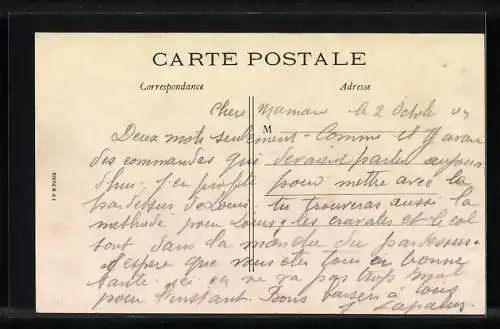 CARTE POSTALE
Correspondance
Adresse
Chere Maman le 2 Octob 09
M
Deux mots seulement. Comme il y avait
des commandes qui devaient partir aujour
d'hui, j'en profite pour mettre avec la
pardessus de Louis; tu trouveras aussi la
methode pour Louis; les cravates et le col
sont dans la manche du pardessus.
J'espere que vous etes tous en bonne
santé. ici ca ne va pas trop mal
pour l'instant. Bons baisers à tous